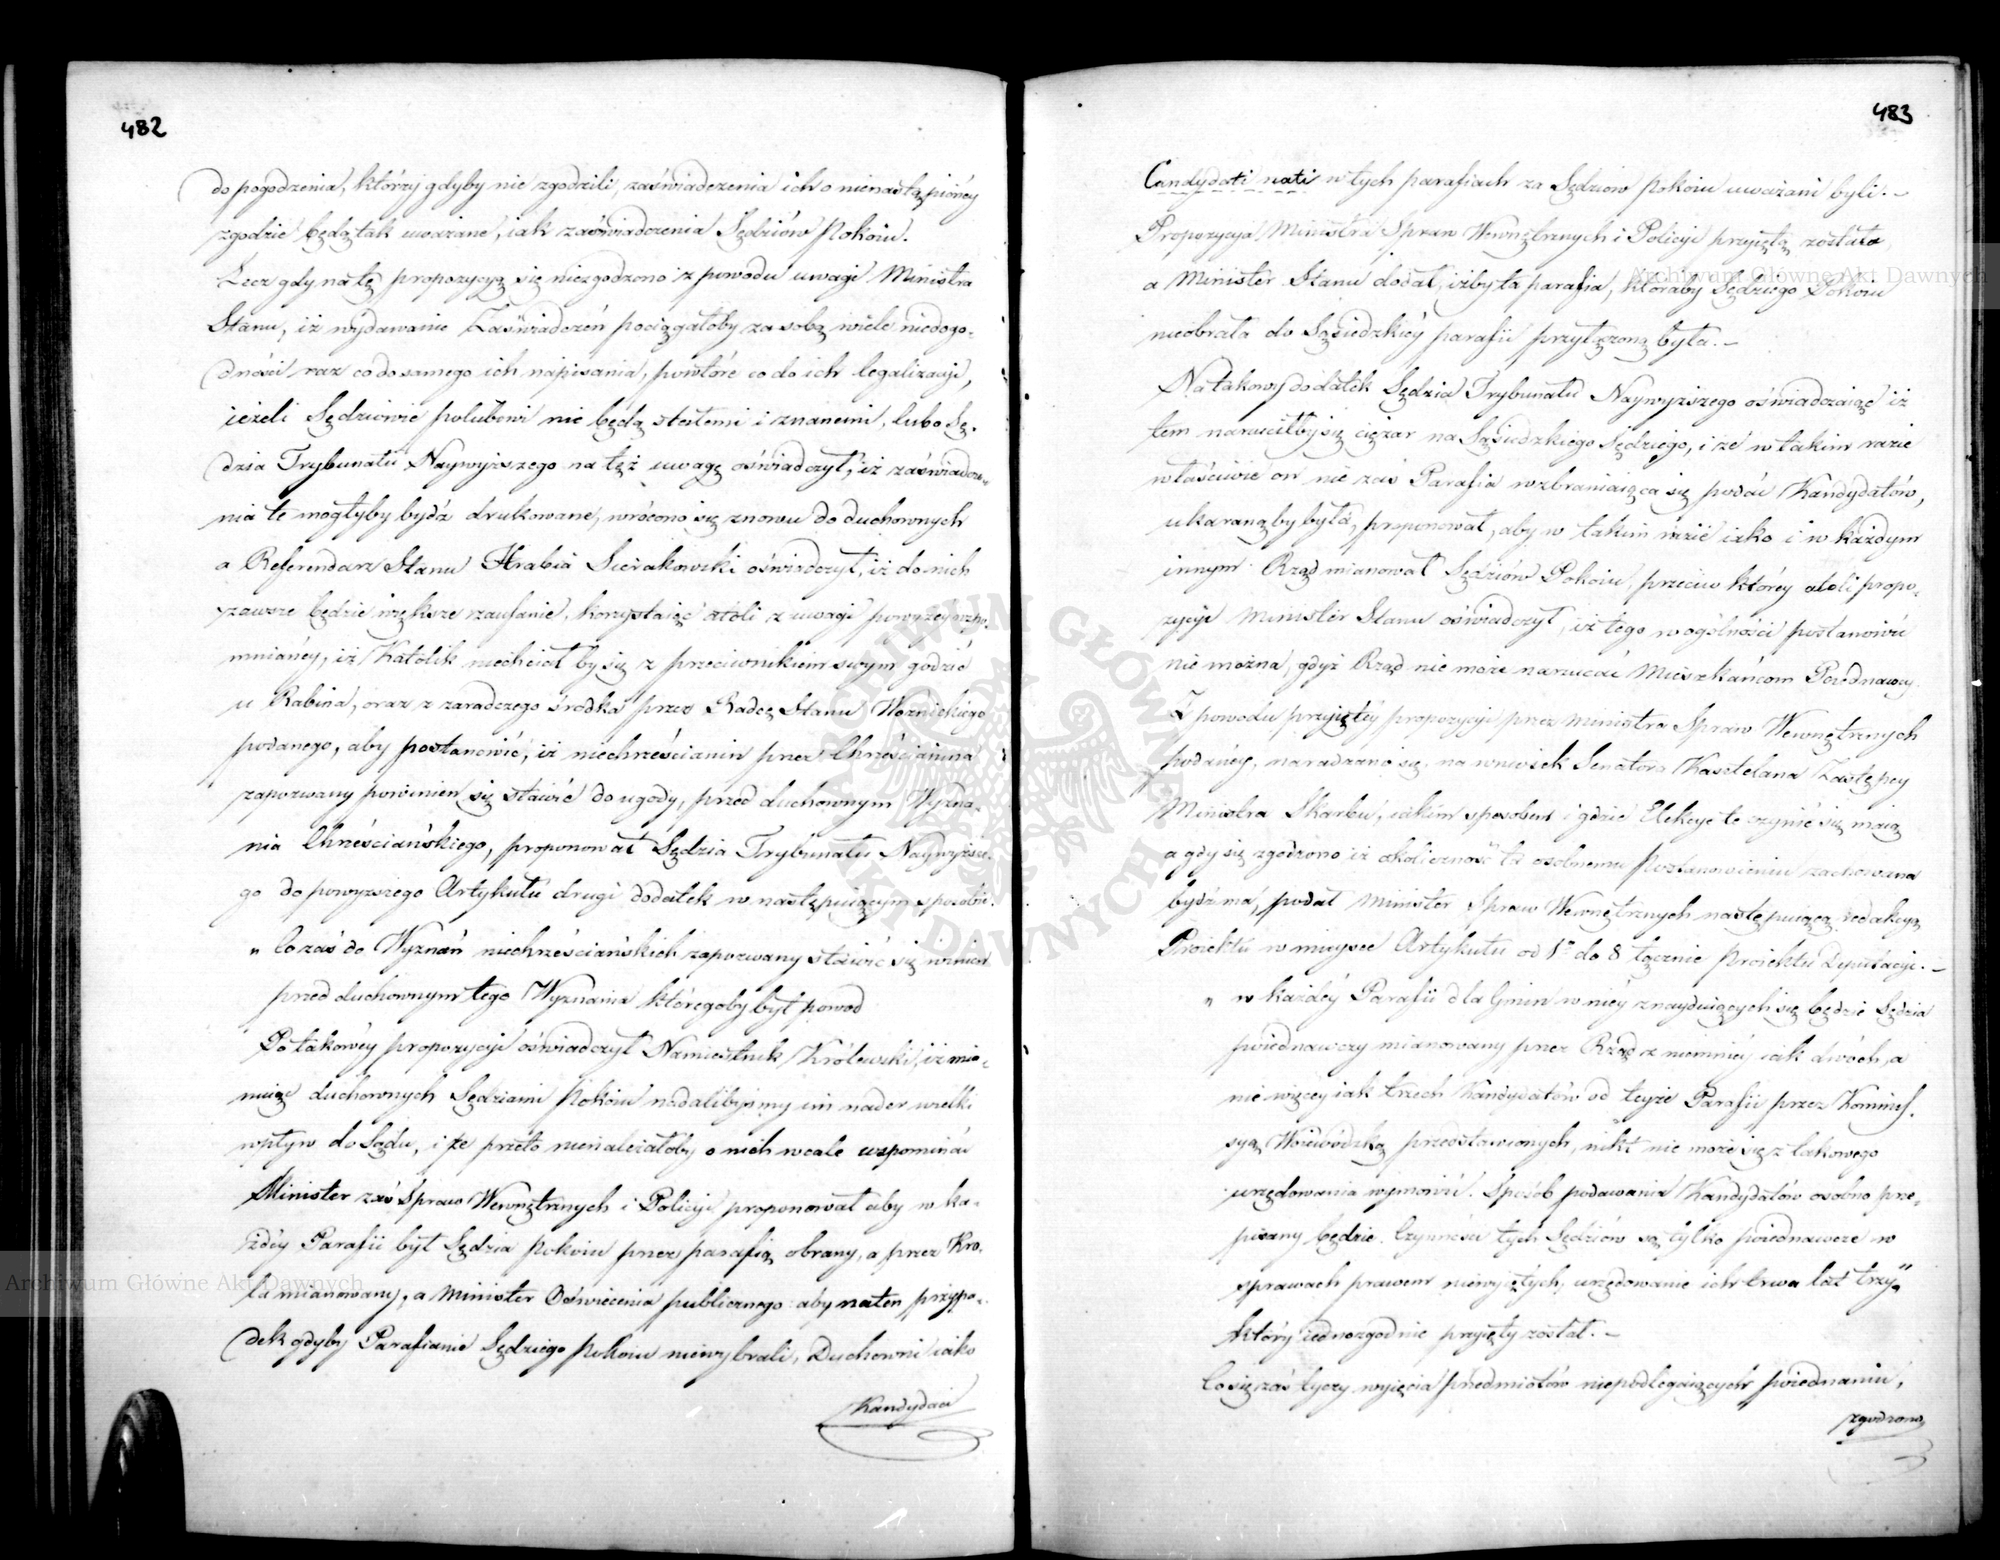 482
do pogodzenia, którzy gdyby nie zgodzili, zaświadczenia ich o nienastąpionéy
zgodzie będą tak uważane, iak zaświadczenia Sędziów Pokoiu.
Lecz gdy na tę propozycyą się niezgodzono z powodu uwagi Ministra
Stanu, iż wydawanie Zaświadczeń pociągałoby za sobą wiele niedogo-
dności raz co do samego ich napisania, powtóre co do ich legalizacyi,
ieżeli Sędziowie polubowi nie będą stałemi i znanemi, lubo Sę-
dzia Trybunału Naywyższego na tęż uwagę oświadczył, iż zaświadcze-
nia te mogłyby bydź drukowane, wrócono się znowu do duchownych
a Referendarz Stanu Hrabia Sierakowski oświadczył, iż do nich
zawsze będzie większe zaufanie, korzystaiąc atoli z uwagi powyżey wspo-
mnianéy, iż Katolik niechciał by się z przeciwnikiem swym godzić
u Rabina, oraz z zaradczego środka przez Radcę Stanu Woźnickiego
podanego, aby postanowić, iż niechrześcianin przez Chrześcianina
zapozwany powinien się stawić do ugody, przed duchownym Wyzna-
nia Chrześciańskiego, proponował Sędzia Trybunału Naywyższe-
go do powyższego Artykułu drugi dodatek w następuiącym sposobie.
„ Co zaś do Wyznań niechrześciańskich zapozwany stawić się winien
przed duchownym tego Wyznania któregoby był powod
Po takowéy propozycyi oświadczył Namiestnik Królewski, iż mia-
nuiąc duchownych Sędziami Pokoiu nadalibyśmy im nader wielki
wpływ do Sądu, i że przeto nienależałoby o nich wcale wspominać
Minister zaś Spraw Wewnętrznych i Policyi proponował aby w ka-
żdéy Parafii był Sędzia pokoiu przez parafią obrany, a przez Kró-
la mianowany, a Minister Oświecenia publicznego aby na ten przypa-
dek gdyby Parafianie Sędziego Pokoiu niewybrali, Duchowni iako
Kandydaci
483
Candydati nati w tych parafiach za Sędziow Pokoiu uważani byli. –
Propozycya Ministra Spraw Wewnętrznych i Policyi przyiętą została
a Minister Stanu dodał, iżby ta parafia, któraby Sędziego Pokoiu
nieobrała do Sąsiedzkiéy parafii przyłączoną była. –
Na takowy dodatek Sędzia Trybunału Naywyższego oświadczaiąc iż
tem narzuciłby się ciężar na Sąsiedzkiego Sędziego, i że w takim razie
właściwie on nie zaś Parafia wzbraniaiąca się podać Kandydatów,
ukaraną by była, proponował, aby w takim razie iako i w każdym
innym Rząd mianował Sędziów Pokoiu, przeciw któréy atoli propo-
zycyi Minister Stanu oświadczył, iż tego w ogólności postanowić
nie można, gdyż Rząd nie może narzucać Mieszkańcom Poiednawcy.
Z powodu przyiętéy propozycyi przez Ministra Spraw Wewnętrznych
podanéy, naradzano się, na wniosek Senatora Kasztelana Zastępcy
Ministra Skarbu, iakim sposobem i gdzie Elekcye te czynić się maią
a gdy się zgodzono iż okoliczność ta osobnemu Postanowieniu zachowana
bydź ma, podał Minister Spraw Wewnętrznych następuiącą redakcyą
Proiektu w mieysce Artykułu od 1º do 8 łącznie Proiektu Deputacyi. –
„ w każdéy Parafii dla Gmin w niéy znayduiących się będzie Sędzia
poiednawczy mianowany przez Rząd z niemniéy iak dwóch, a
nie więcéy iak trzech Kandydatów od teyże Parafii przez Kommis-
syą Woiewódzką przedstawionych, nikt nie może się z takowego
urzędowania wymówić. Sposób podawania Kandydatów osobno prze-
pisany będzie. Czynności tych Sędziów są tylko poiednawcze w
sprawach prawem niewyiętych, urzędowanie ich trwa lat trzy„
który iednozgodnie przyięty został. –
Co się zaś tyczy wyięcia przedmiotów niepodlegaiących poiednaniu,
zgodzono
Archiwum Główne Akt Dawnych
Archiwum Główne Akt Dawnych
ARCHIWUM GŁÓWNE AKT DAWNYCH